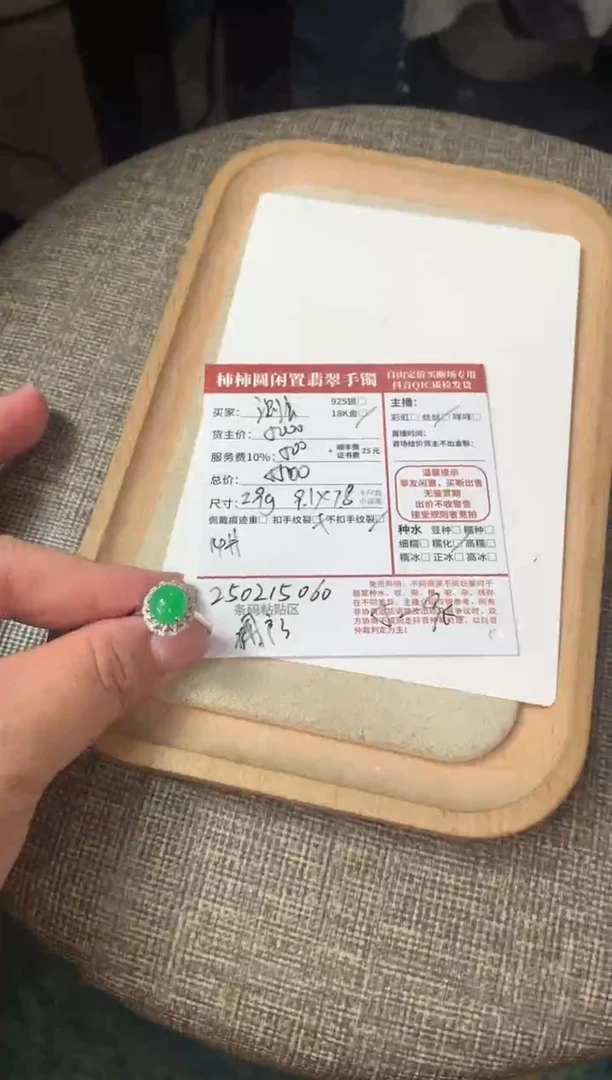 柿柿圆闲置翡翠手镯 自由定价买断场专用
抖音QIC质检发货
买家: 925银□
18K金□
货主价: 5000
服务费10%: 500 + 顺丰费 证书费 25元
总价: 5500
尺寸: 2.9g 9.1×7.8 卡尺会小误差
佩戴痕迹重□ 扣手纹裂□ 不扣手纹裂□
14#
主播:
彩虹□ 丝丝□ 咩咩□
直播时间:
首场给价货主不出金额:
温馨提示
翠友闲置，买断出售
无鉴赏期
出价不收警告
接受规则者竞拍
种水 豆种□ 糯种□
细糯□ 糯化□ 高糯□
糯冰□ 正冰□ 高冰□
250215060
条码粘贴区